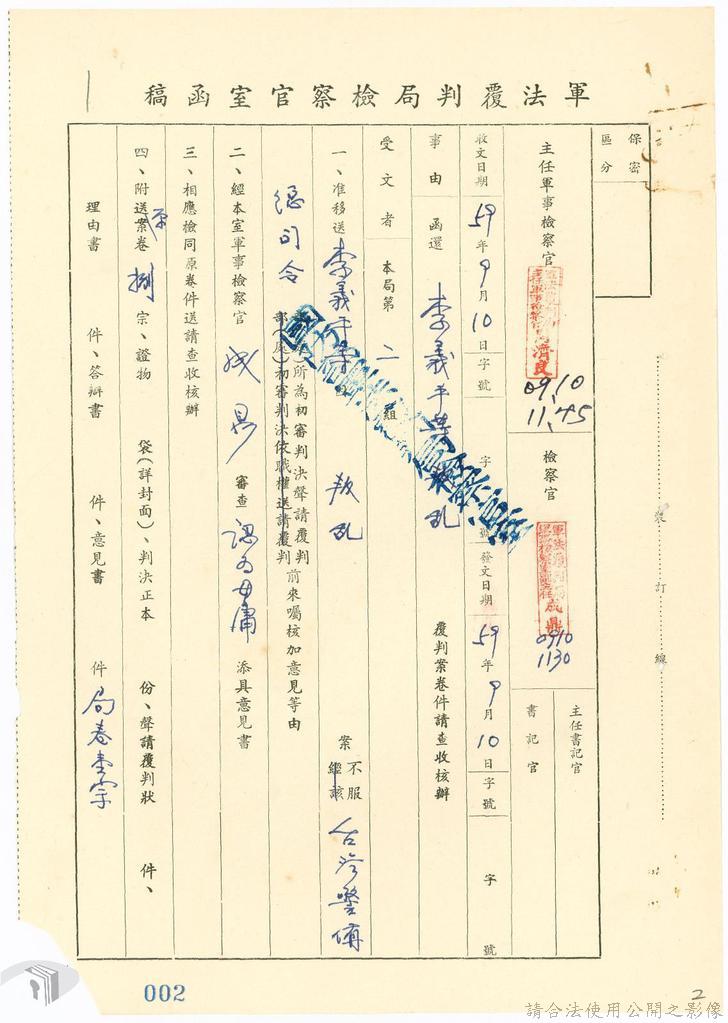 軍法覆判局檢察官室函稿
保密
區分
主任軍事檢察官
09,10
11,45
檢察官
成鼎
0910
1130
主任書記官
書記官
收文日期 59年9月10日 字號 字 號 發文日期 59年9月10日 字號 字 號
事由 函還 李義平等叛亂 覆判案卷件請查收核辦
受文者 本局第二組
一、准移送 李義平等 叛亂 案 不服 經該 台灣警備
總司令 部(處)初審判決依職權送請覆判 所為初審判決聲請覆判 前來囑核加意見等由
二、經本室軍事檢察官 成鼎 審查 認為毋庸 添具意見書
三、相應檢同原卷件送請查收核辦
四、附送案卷 原 捌 宗、證物 袋(詳封面)、判決正本 份、聲請覆判狀 件、
理由書 件、答辯書 件、意見書 件 局卷壹宗
裝訂線
002
2
請合法使用公開之影像